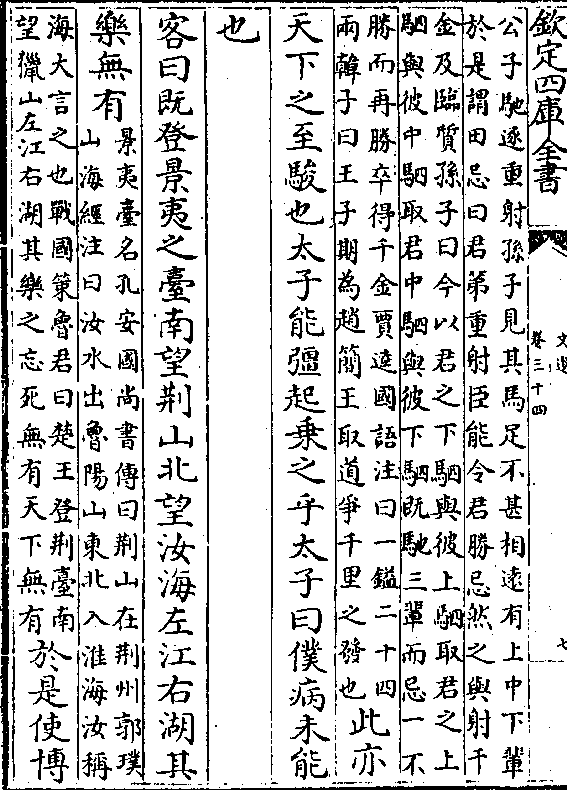 欽定四庫全書
文選
卷三十四
七
公子馳逐重射孫子見其馬足不甚相逺有上中下輩
於是謂田忌曰君第重射臣能令君勝忌然之與射千
金及臨質孫子曰今以君之下駟與彼上駟取君之上
駟與彼中駟取君中駟與彼下駟既馳三輩而忌一不
勝而再勝卒得千金賈逵國語注曰一鎰二十四
兩韓子曰王子期為趙簡王取道爭千里之發也此亦
天下之至駿也太子能彊起乗之乎太子曰僕病未能
也
客曰既登景夷之臺南望荆山北望汝海左江右湖其
樂無有
景夷臺名孔安國尚書傳曰荆山在荆州郭璞
山海經注曰汝水出魯陽山東北入淮海汝稱
海大言之也戰國策魯君曰楚王登荆臺南
望獵山左江右湖其樂之忘死無有天下無有於是使博